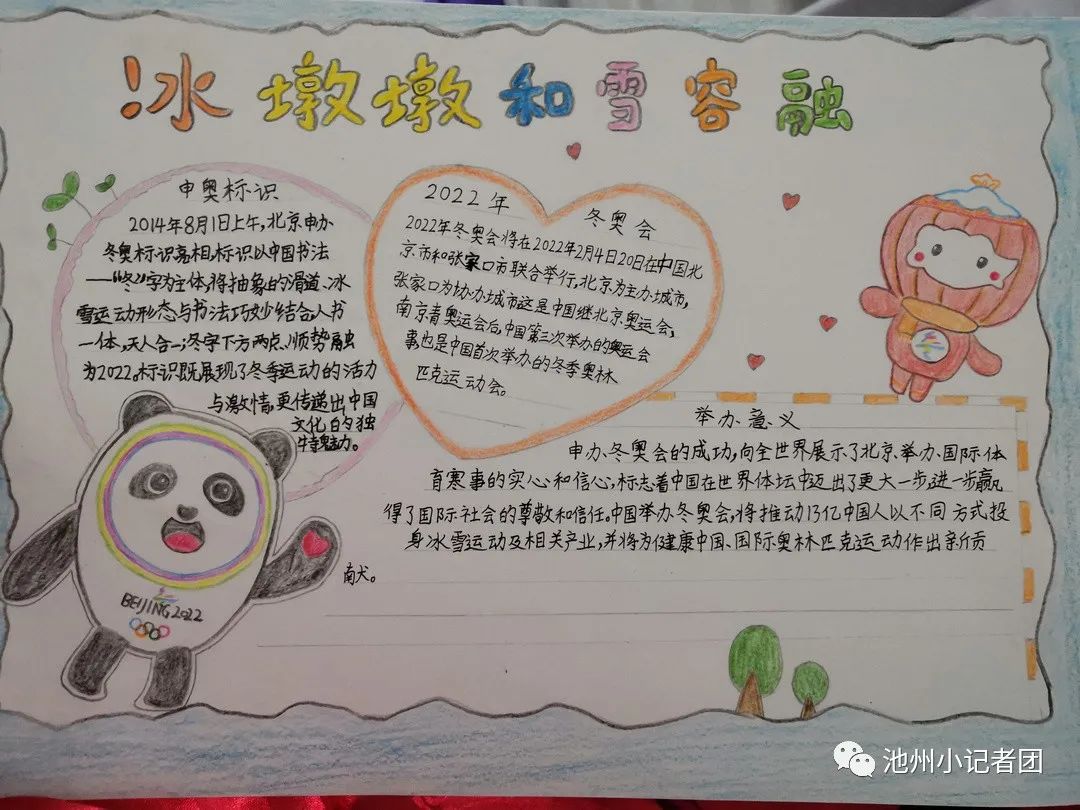 冰墩墩和雪容融
申奥标识
2014年8月1日上午,北京申办
冬奥标识亮相,标识以中国书法
——“冬”字为主体,将抽象的滑道、冰
雪运动形态与书法巧妙结合人书
一体,天人合一;冬字下方两点、顺势融
为2022。标识既展现了冬季运动的活力
与激情,更传递出中国
文化的独
特魅力。
2022年
冬奥会
2022年冬奥会将在2022年2月4日20日在中国北
京市和张家口市联合举行,北京为主办城市,
张家口为协办城市这是中国继北京奥运会,
南京青奥运会后,中国第三次举办的奥运会
事也是中国首次举办的冬季奥林
匹克运动会。
举办意义
申办冬奥会的成功,向全世界展示了北京举办国际体
育赛事的实心和信心,标志着中国在世界体坛中迈出了更大一步,进一步赢
得了国际社会的尊敬和信任。中国举办冬奥会,将推动13亿中国人以不同方式投
身冰雪运动及相关产业,并将为健康中国、国际奥林匹克运动作出新贡
献。
BEIJING 2022
池州小记者团